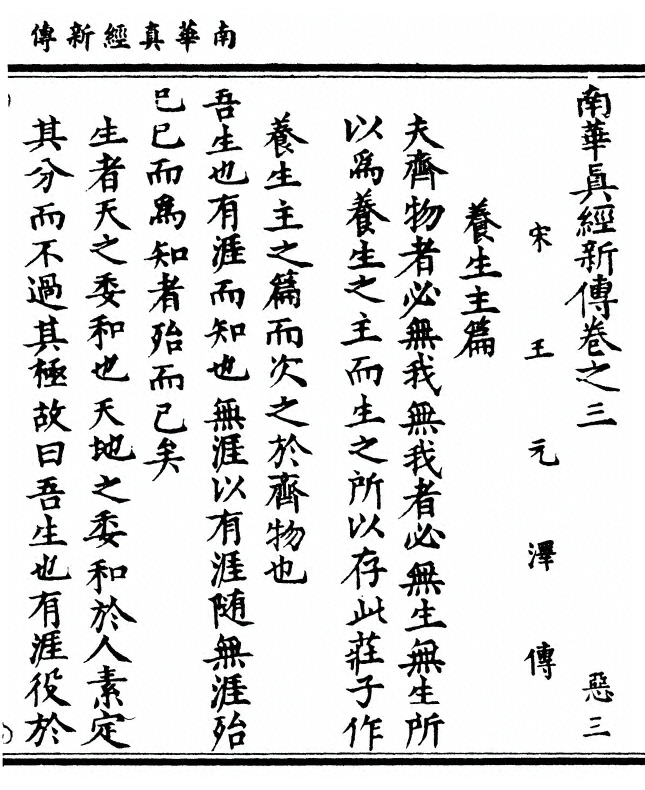 南華真經新傳
南華眞經新傳卷之三 惡三
宋王元澤傳
養生主篇
夫齊物者必無我無我者必無生無生所
以爲養生之主而生之所以存此莊子作
養生主之篇而次之於齊物也
吾生也有涯而知也無涯以有涯隨無涯殆
已已而爲知者殆而已矣
生者天之委和也天地之委和於人素定
其分而不過其極故曰吾生也有涯役於